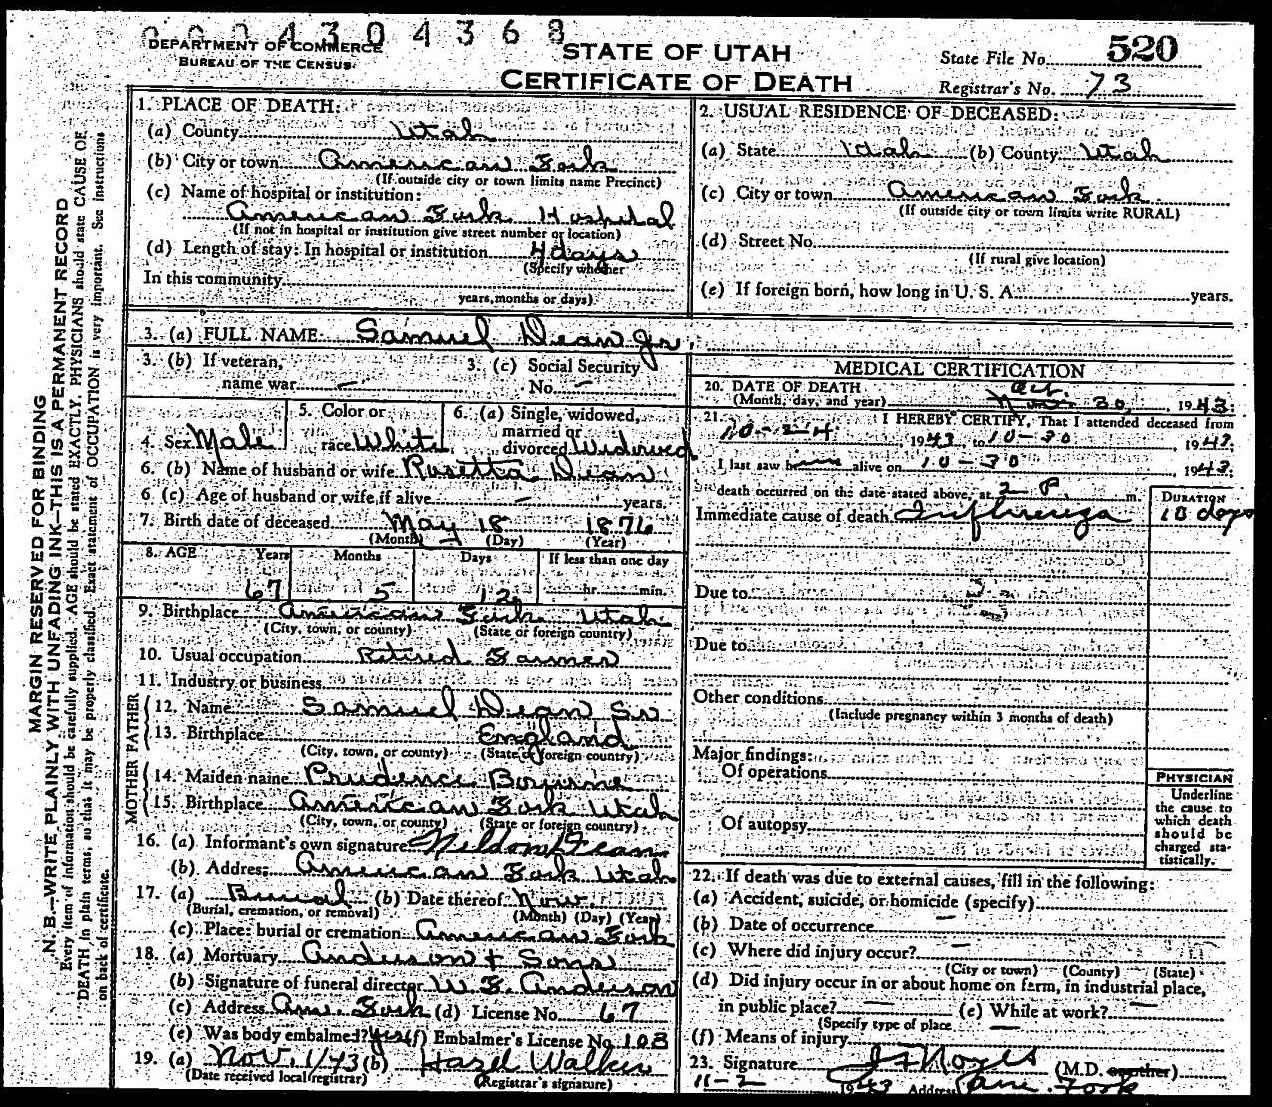 0004304368
DEPARTMENT OF COMMERCE
BUREAU OF THE CENSUS
STATE OF UTAH
CERTIFICATE OF DEATH
State File No. 520
Registrar's No. 73
MARGIN RESERVED FOR BINDING
N. B.—WRITE PLAINLY WITH UNFADING INK—THIS IS A PERMANENT RECORD
Every item of information should be carefully supplied. AGE should be stated EXACTLY. PHYSICIANS should state CAUSE OF
DEATH in plain terms, so that it may be properly classified. Exact statement of OCCUPATION is very important. See instructions
on back of certificate.
1. PLACE OF DEATH:
(a) County Utah
(b) City or town American Fork
(If outside city or town limits name Precinct)
(c) Name of hospital or institution:
American Fork Hospital
(If not in hospital or institution give street number or location)
(d) Length of stay: In hospital or institution 4 days
(Specify whether
In this community
years, months or days)
2. USUAL RESIDENCE OF DECEASED:
(a) State Utah (b) County Utah
(c) City or town American Fork
(If outside city or town limits write RURAL)
(d) Street No.
(If rural give location)
(e) If foreign born, how long in U. S. A. years.
3. (a) FULL NAME Samuel Dean Jr.
3. (b) If veteran,
name war —
3. (c) Social Security
No. —
4. Sex Male
5. Color or
race White
6. (a) Single, widowed,
married or
divorced Widowed
6. (b) Name of husband or wife Rosetta Dean
6 (c) Age of husband or wife if alive — years.
7. Birth date of deceased May 18 1876
(Month) (Day) (Year)
8. AGE Years Months Days If less than one day
67 5 12 hr. min.
9. Birthplace American Fork Utah
(City, town, or county) (State or foreign country)
10. Usual occupation Retired Farmer
11. Industry or business
FATHER
12. Name Samuel Dean Sr
13. Birthplace England
(City, town, or county) (State or foreign country)
MOTHER
14. Maiden name Prudence
15. Birthplace American Fork Utah
(City, town, or county) (State or foreign country)
16. (a) Informant's own signature Neldon Dean
(b) Address American Fork Utah
17. (a) Burial (b) Date thereof Nov.
(Burial, cremation, or removal) (Month) (Day) (Year)
(c) Place: burial or cremation American Fork
18. (a) Mortuary Anderson & Sons
(b) Signature of funeral director W. E. Anderson
(c) Address Am. Fork (d) License No. 67
(e) Was body embalmed? yes (f) Embalmer's License No. 108
19. (a) Nov. 1/43 (b) Hazel Walker
(Date received local registrar) (Registrar's signature)
MEDICAL CERTIFICATION
20. DATE OF DEATH Oct.
(Month, day, and year) Nov. 30, 1943.
21. I HEREBY CERTIFY, That I attended deceased from
10-24 1943 to 10-30, 1943.
I last saw h alive on 10-30 1943.
death occurred on the date stated above, at 2 P. m.
Immediate cause of death Influenza
DURATION
10 days
Due to
Due to
Other conditions
(Include pregnancy within 3 months of death)
Major findings:
Of operations
Of autopsy
PHYSICIAN
Underline
the cause to
which death
should be
charged sta-
tistically.
22. If death was due to external causes, fill in the following:
(a) Accident, suicide, or homicide (specify)
(b) Date of occurrence —
(c) Where did injury occur? —
(City or town) (County) (State)
(d) Did injury occur in or about home on farm, in industrial place,
in public place? — (e) While at work? —
(Specify type of place
(f) Means of injury —
23. Signature Noyes (M.D. or other)
11-2 1943 Address Am. Fork